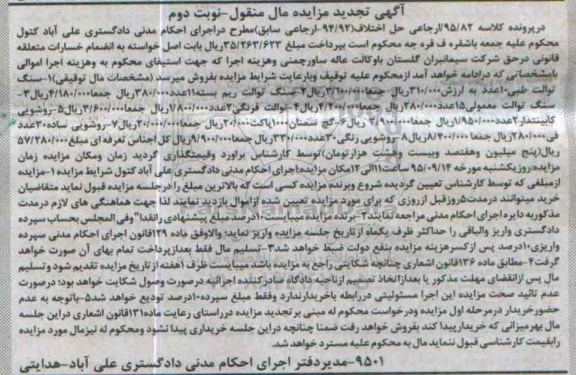 آگهی تجدید مزایده مال منقول-نوبت دوم
درپرونده کلاسه ۹۵/۸۲ارجاعی حل اختلاف(۹۴/۹۲-ارجاعی سابق)مطرح دراجرای احکام مدنی دادگستری علی آباد کتول
محکوم علیه جمعه باشقره ف قره جه محکوم است بپرداخت مبلغ ۳۵/۲۶۳/۶۳۳ریال بابت اصل خواسته به انضمام خسارات متعلقه
قانونی درحق شرکت سیمانبران گلستان باوکالت عاله ساورچمنی وهزینه اجرا که جهت استیفای محکوم به وهزینه اجرا اموالی
بامشخصاتی که درادامه خواهد آمد ازمحکوم علیه توقیف وبارعایت شرایط مزایده بفروش میرسد (مشخصات مال توقیفی)۱-سنگ
توالت طبی۱۰عدد به ارزش ۳۱۰/۰۰۰ریال جمعا۳/۱۰۰/۰۰۰ریال۲-سنگ توالت ریم بسته۱۱عدد۳۸۰/۰۰۰ریال جمعا۴/۱۸۰/۰۰۰ریال۳-
سنگ توالت معمولی۱۵عدد۲۸۰/۰۰۰ریال جمعا۴/۲۰۰/۰۰۰ریال۴-توالت فرنگی۲عدد۱/۸۰۰/۰۰۰ریال جمعا۳/۶۰۰/۰۰۰ریال۵-روشویی
کابینتدار۲عدد۱/۹۵۰/۰۰۰ریال جمعا ۳/۹۰۰/۰۰۰ ریال۶-گچ سمنان ۱۰۰۰پاکت۲۰/۰۰۰ریال جمعا۲۰/۰۰۰/۰۰۰ریال۷-روشویی ساده۳۰عدد
فی۲۸۰/۰۰۰ریال جمعا ۸/۴۰۰/۰۰۰ریال۸-روشویی رنگی۳۰عدد۳۳۰/۰۰۰ریال جمعا۹/۹۰۰/۰۰۰ریال کل اجناس تعرفه ای مبلغ۵۷/۲۸۰/۰۰۰
ریال(پنج میلیون وهفتصد وبیست وهشت هزارتومان)توسط کارشناس براورد وقیمتگذاری گردید زمان ومکان مزایده زمان
مزایده:روزیکشنبه مورخه ۹۵/۰۹/۱۴ ساعت۱۱الی۱۲مکان مزایده:اجرای احکام مدنی دادگستری علی آباد کتول شرایط مزایده ۱-مزایده
ازمبلغی که توسط کارشناس تعیین گردیده شروع وبرنده مزایده کسی است که بالاترین مبلغ رادرجلسه مزایده قبول نماید متقاضیان
خرید میتوانند درمدت۵روزقبل ازروزی که برای مورد مزایده تعیین شده ازاموال بازدید نمایند لذا جهت هماهنگی های لازم درمدت
مذکوربه دایره اجرای احکام مدنی مراجعه نمایند۲-برنده مزایده میبایست۱۰درصد مبلغ پیشنهادی رانقدا"وفی المجلس بحساب سپرده
دادگستری واریز والباقی را حداکثر ظرف یکماه ازتاریخ جلسه مزایده واریز نماید؛ والاوفق ماده ۱۲۹قانون اجرای احکام مدنی سپرده
واریزی۱۰درصد پس ازکسرهزینه مزایده بنفع دولت ضبط خواهد شد۳-تسلیم مال فقط بعدازپرداخت تمام بهای آن صورت خواهد
گرفت۴-مطابق ماده ۱۳۶قانون اشعاری چنانچه شکایتی راجع به مزایده باشد میبایست ظرف ۱هفته ازتاریخ مزایده تقدیم شود وتسلیم
مال پس ازانقضای مهلت مذکور یا بعدازاتخاذ تصمیم ازناحیه دادگاه صادرکننده اجرائیه درصورت وصول شکایت خواهد بود؛ درصورت
عدم تائید صحت مزایده این اجرا مسئولیتی دررابطه باخریدارندارد وفقط مبلغ سپرده۱۰درصد تودیع خواهد شد۵-باتوجه به عدم
حضورخریدار درمرحله اول مزایده ودرخواست محکوم له مبنی بر تجدید مزایده درراستای رعایت ماده۱۳۱قانون اشعاری دراین جلسه
مال بهرمیزانی که خریدارپیدا کند بفروش خواهد رفت ضمنا چنانچه دراین جلسه خریداری پیدا نشود ومحکوم له نیزمال مورد مزایده
رابقیمت کارشناسی قبول ننماید مال به محکوم علیه مسترد خواهد شد.
۹۵۰۱-مدیردفتر اجرای احکام مدنی دادگستری علی آباد-هدایتی